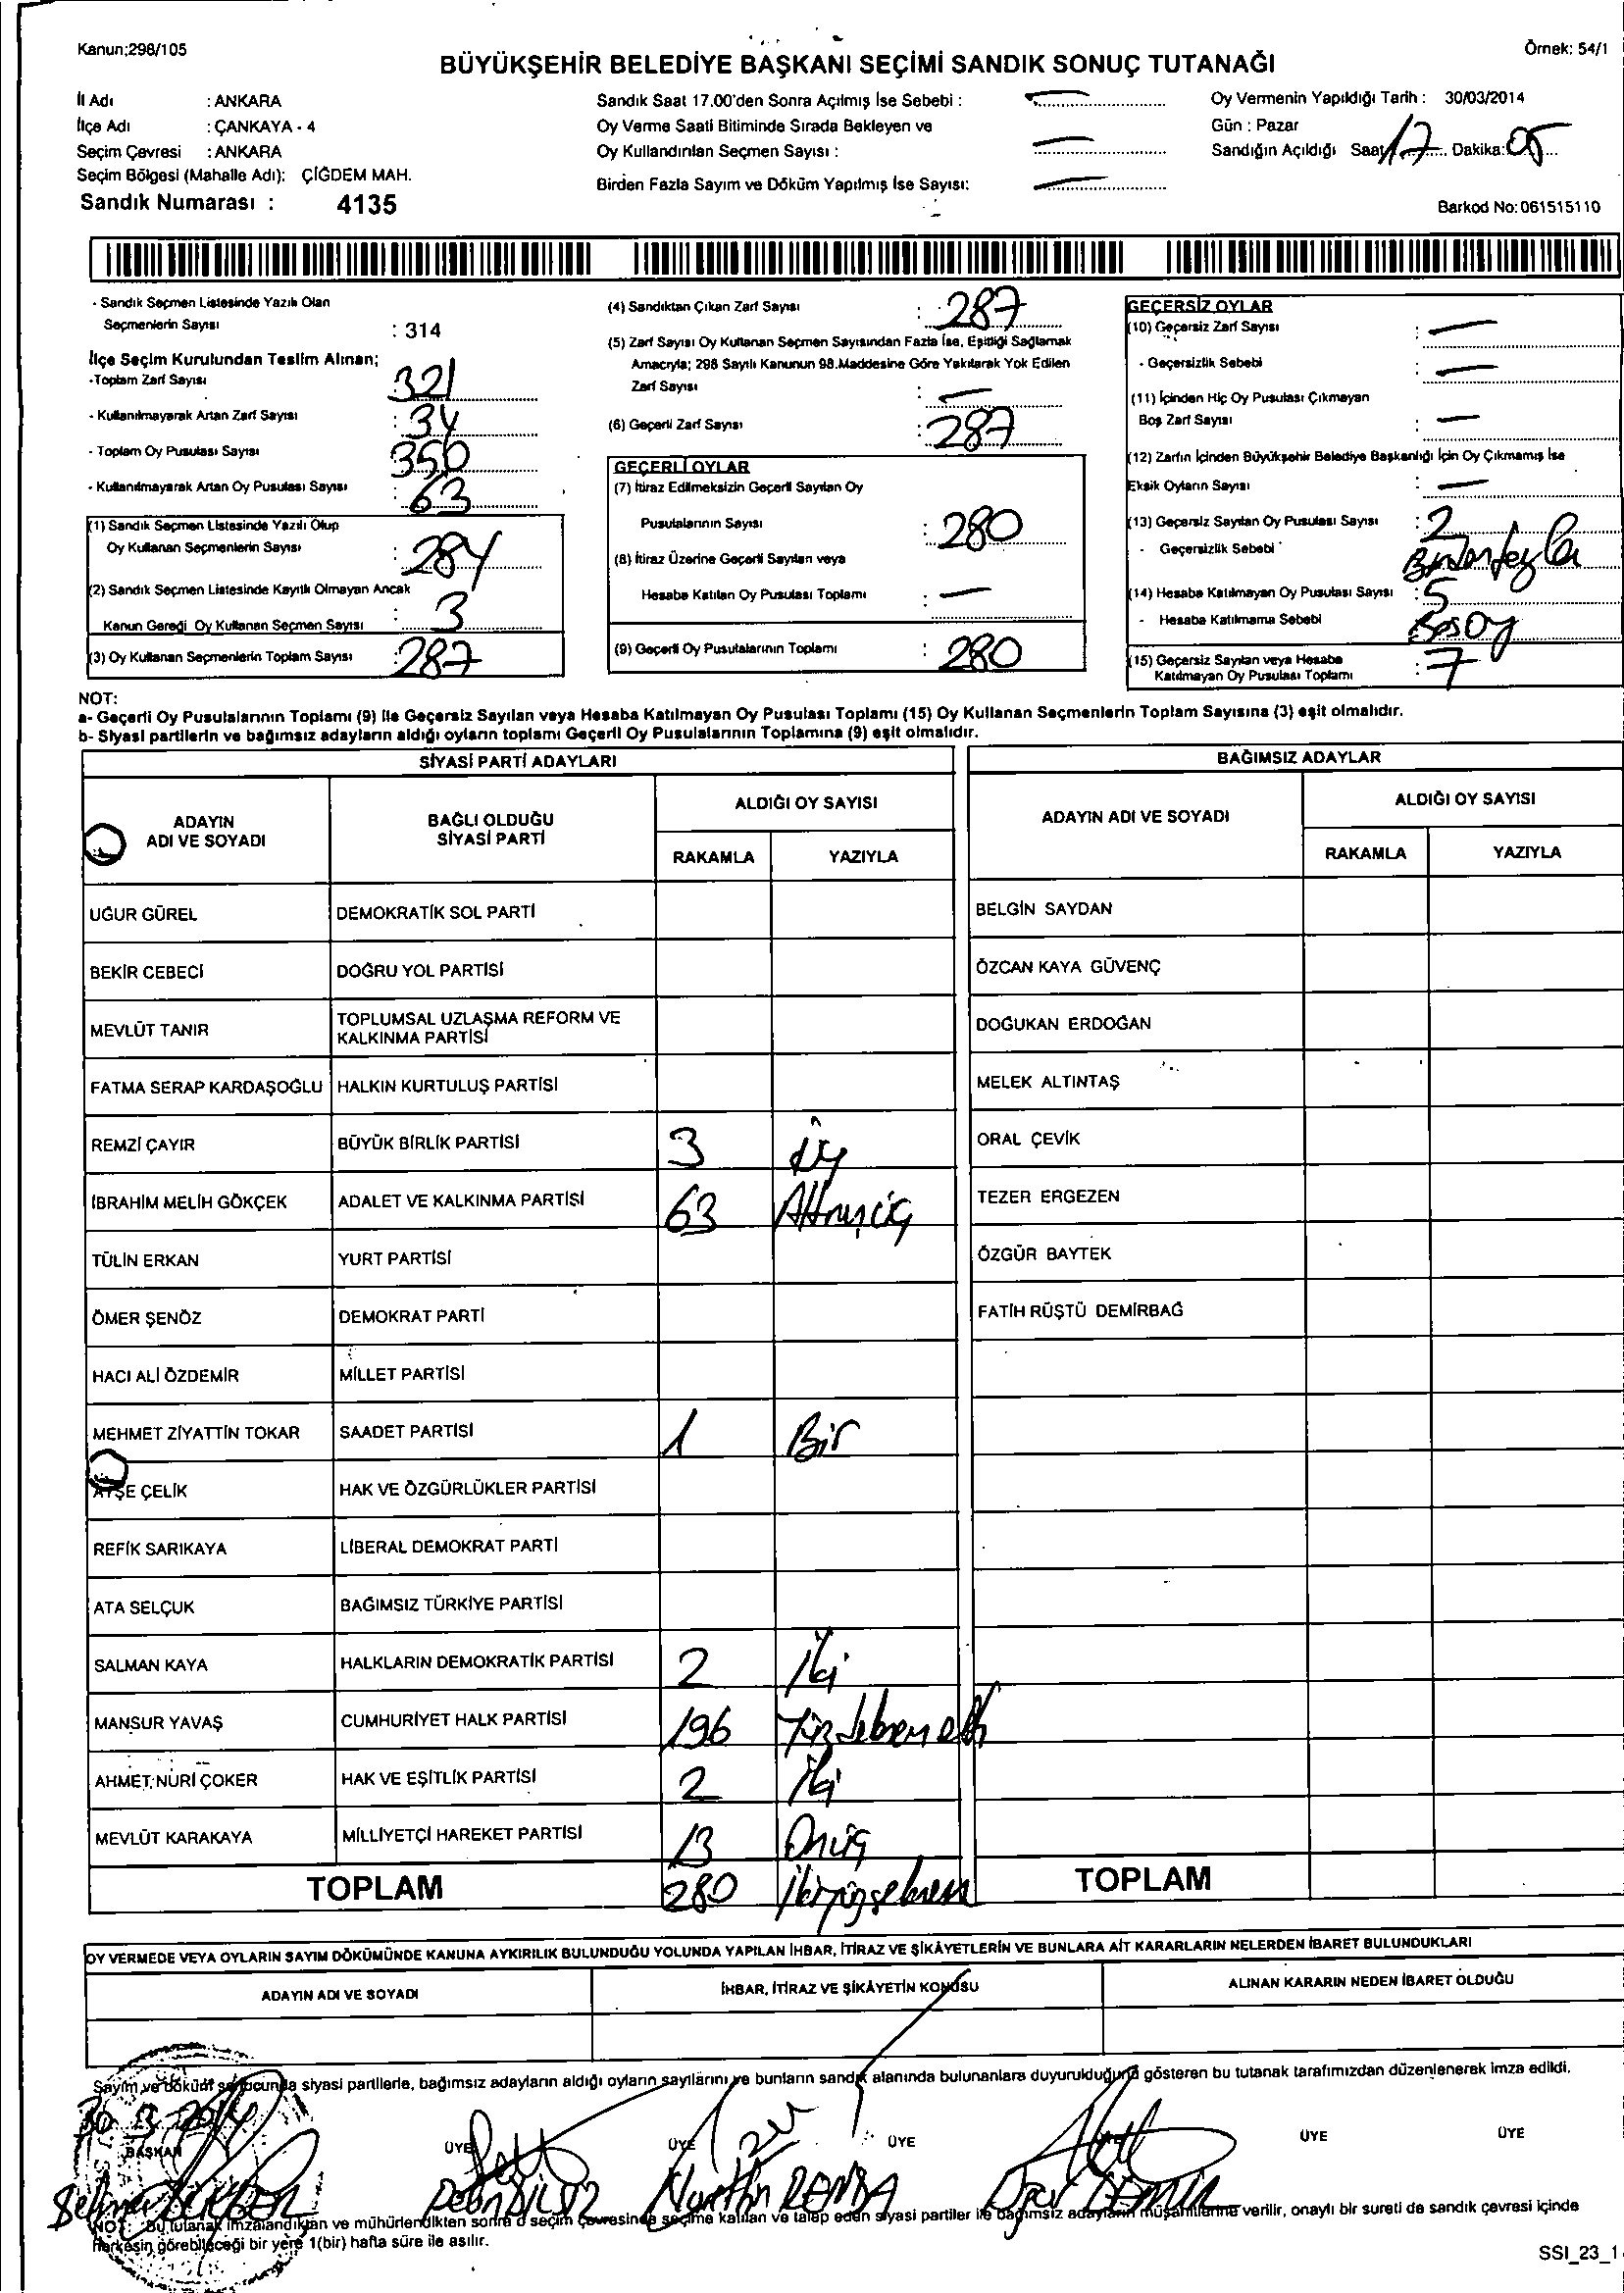 Kanun;298/105
Örnek: 54/1
BÜYÜKŞEHİR BELEDİYE BAŞKANI SEÇİMİ SANDIK SONUÇ TUTANAĞI
İl Adı : ANKARA
İlçe Adı : ÇANKAYA - 4
Seçim Çevresi : ANKARA
Seçim Bölgesi (Mahalle Adı): ÇİĞDEM MAH.
Sandık Numarası : 4135
Sandık Saat 17.00'den Sonra Açılmış İse Sebebi :
Oy Verme Saati Bitiminde Sırada Bekleyen ve
Oy Kullandırılan Seçmen Sayısı :
Birden Fazla Sayım ve Döküm Yapılmış İse Sayısı:
Oy Vermenin Yapıldığı Tarih : 30/03/2014
Gün : Pazar
Sandığın Açıldığı Saat 17 Dakika: 05
Barkod No: 061515110
- Sandık Seçmen Listesinde Yazılı Olan
Seçmenlerin Sayısı : 314
İlçe Seçim Kurulundan Teslim Alınan;
-Toplam Zarf Sayısı : 321
- Kullanılmayarak Artan Zarf Sayısı : 34
- Toplam Oy Pusulası Sayısı 350
- Kullanılmayarak Artan Oy Pusulası Sayısı : 63
(1) Sandık Seçmen Listesinde Yazılı Olup
Oy Kullanan Seçmenlerin Sayısı : 284
(2) Sandık Seçmen Listesinde Kayıtlı Olmayan Ancak
Kanun Gereği Oy Kullanan Seçmen Sayısı : 3
(3) Oy Kullanan Seçmenlerin Toplam Sayısı : 287
(4) Sandıktan Çıkan Zarf Sayısı : 287
(5) Zarf Sayısı Oy Kullanan Seçmen Sayısından Fazla İse, Eşitliği Sağlamak
Amacıyla; 298 Sayılı Kanunun 98.Maddesine Göre Yakılarak Yok Edilen
Zarf Sayısı :
(6) Geçerli Zarf Sayısı : 287
GEÇERLİ OYLAR
(7) İtiraz Edilmeksizin Geçerli Sayılan Oy
Pusulalarının Sayısı : 280
(8) İtiraz Üzerine Geçerli Sayılan veya
Hesaba Katılan Oy Pusulası Toplamı :
(9) Geçerli Oy Pusulalarının Toplamı : 280
GEÇERSİZ OYLAR
(10) Geçersiz Zarf Sayısı :
- Geçersizlik Sebebi :
(11) İçinden Hiç Oy Pusulası Çıkmayan
Boş Zarf Sayısı :
(12) Zarfın İçinden Büyükşehir Belediye Başkanlığı İçin Oy Çıkmamış İse
Eksik Oyların Sayısı :
(13) Geçersiz Sayılan Oy Pusulası Sayısı : 2
- Geçersizlik Sebebi Birden fazla
(14) Hesaba Katılmayan Oy Pusulası Sayısı : 5
- Hesaba Katılmama Sebebi Boş oy
(15) Geçersiz Sayılan veya Hesaba
Katılmayan Oy Pusulası Toplamı : 7
NOT:
a- Geçerli Oy Pusulalarının Toplamı (9) ile Geçersiz Sayılan veya Hesaba Katılmayan Oy Pusulası Toplamı (15) Oy Kullanan Seçmenlerin Toplam Sayısına (3) eşit olmalıdır.
b- Siyasi partilerin ve bağımsız adayların aldığı oyların toplamı Geçerli Oy Pusulalarının Toplamına (9) eşit olmalıdır.
SİYASİ PARTİ ADAYLARI
ADAYIN
ADI VE SOYADI
BAĞLI OLDUĞU
SİYASİ PARTİ
ALDIĞI OY SAYISI
RAKAMLA YAZIYLA
UĞUR GÜREL DEMOKRATİK SOL PARTİ
BEKİR CEBECİ DOĞRU YOL PARTİSİ
MEVLÜT TANIR TOPLUMSAL UZLAŞMA REFORM VE
KALKINMA PARTİSİ
FATMA SERAP KARDAŞOĞLU HALKIN KURTULUŞ PARTİSİ
REMZİ ÇAYIR BÜYÜK BİRLİK PARTİSİ 3 üç
İBRAHİM MELİH GÖKÇEK ADALET VE KALKINMA PARTİSİ 63 Altmışüç
TÜLİN ERKAN YURT PARTİSİ
ÖMER ŞENÖZ DEMOKRAT PARTİ
HACI ALİ ÖZDEMİR MİLLET PARTİSİ
MEHMET ZİYATTİN TOKAR SAADET PARTİSİ 1 Bir
AYŞE ÇELİK HAK VE ÖZGÜRLÜKLER PARTİSİ
REFİK SARIKAYA LİBERAL DEMOKRAT PARTİ
ATA SELÇUK BAĞIMSIZ TÜRKİYE PARTİSİ
SALMAN KAYA HALKLARIN DEMOKRATİK PARTİSİ 2 İki
MANSUR YAVAŞ CUMHURİYET HALK PARTİSİ 196
AHMET NURİ ÇOKER HAK VE EŞİTLİK PARTİSİ 2 İki
MEVLÜT KARAKAYA MİLLİYETÇİ HAREKET PARTİSİ 13 Onüç
TOPLAM 280 İkiyüzseksen
BAĞIMSIZ ADAYLAR
ADAYIN ADI VE SOYADI
ALDIĞI OY SAYISI
RAKAMLA YAZIYLA
BELGİN SAYDAN
ÖZCAN KAYA GÜVENÇ
DOĞUKAN ERDOĞAN
MELEK ALTINTAŞ
ORAL ÇEVİK
TEZER ERGEZEN
ÖZGÜR BAYTEK
FATİH RÜŞTÜ DEMİRBAĞ
TOPLAM
OY VERMEDE VEYA OYLARIN SAYIM DÖKÜMÜNDE KANUNA AYKIRILIK BULUNDUĞU YOLUNDA YAPILAN İHBAR, İTİRAZ VE ŞİKÂYETLERİN VE BUNLARA AİT KARARLARIN NELERDEN İBARET BULUNDUKLARI
ADAYIN ADI VE SOYADI İHBAR, İTİRAZ VE ŞİKÂYETİN KONUSU ALINAN KARARIN NEDEN İBARET OLDUĞU
Sayım ve döküm sonucunda siyasi partilerle, bağımsız adayların aldığı oyların sayılarını ve bunların sandık alanında bulunanlara duyurulduğunu gösteren bu tutanak tarafımızdan düzenlenerek imza edildi.
30 3 2014
BAŞKAN ÜYE ÜYE ÜYE ÜYE ÜYE ÜYE
NOT: Bu tutanak imzalandıktan ve mühürlendikten sonra o seçim çevresinde seçime katılan ve talep eden siyasi partiler ile bağımsız adayların müşahitlerine verilir, onaylı bir sureti de sandık çevresi içinde
herkesin görebileceği bir yere 1(bir) hafta süre ile asılır.
SSI_23_1